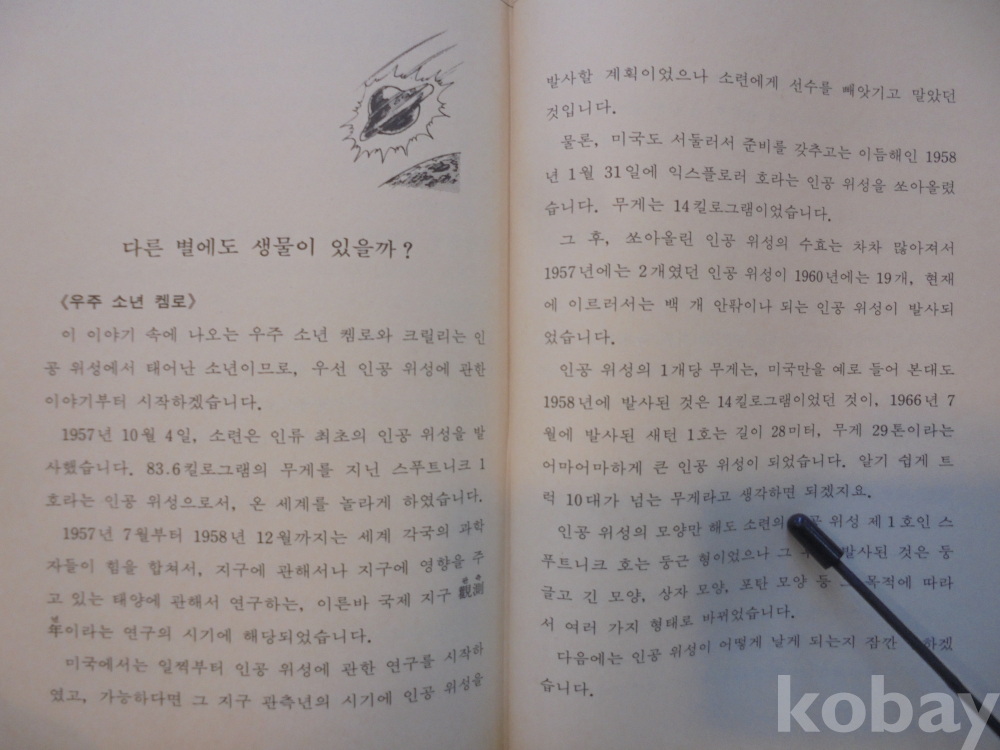 다른 별에도 생물이 있을까?
《우주 소년 켐로》
이 이야기 속에 나오는 우주 소년 켐로와 크릴리는 인
공 위성에서 태어난 소년이므로, 우선 인공 위성에 관한
이야기부터 시작하겠습니다.
1957년 10월 4일, 소련은 인류 최초의 인공 위성을 발
사했습니다. 83.6킬로그램의 무게를 지닌 스푸트니크 1
호라는 인공 위성으로서, 온 세계를 놀라게 하였습니다.
1957년 7월부터 1958년 12월까지는 세계 각국의 과학
자들이 힘을 합쳐서, 지구에 관해서나 지구에 영향을 주
고 있는 태양에 관해서 연구하는, 이른바 국제 지구 觀測
年이라는 연구의 시기에 해당되었습니다.
미국에서는 일찍부터 인공 위성에 관한 연구를 시작하
였고, 가능하다면 그 지구 관측년의 시기에 인공 위성을
발사할 계획이었으나 소련에게 선수를 빼앗기고 말았던
것입니다.
물론, 미국도 서둘러서 준비를 갖추고는 이듬해인 1958
년 1월 31일에 익스플로러 호라는 인공 위성을 쏘아올렸
습니다. 무게는 14킬로그램이었습니다.
그 후, 쏘아올린 인공 위성의 수효는 차차 많아져서
1957년에는 2개였던 인공 위성이 1960년에는 19개, 현재
에 이르러서는 백 개 안팎이나 되는 인공 위성이 발사되
었습니다.
인공 위성의 1개당 무게는, 미국만을 예로 들어 본대도
1958년에 발사된 것은 14킬로그램이었던 것이, 1966년 7
월에 발사된 새턴 1호는 길이 28미터, 무게 29톤이라는
어마어마하게 큰 인공 위성이 되었습니다. 알기 쉽게 트
럭 10대가 넘는 무게라고 생각하면 되겠지요.
인공 위성의 모양만 해도 소련의 위성 제 1호인 스
푸트니크 호는 둥근 형이었으나 그 발사된 것은 둥
글고 긴 모양, 상자 모양, 포탄 모양 등 목적에 따라
서 여러 가지 형태로 바뀌었습니다.
다음에는 인공 위성이 어떻게 날게 되는지 잠깐
습니다.
kobay